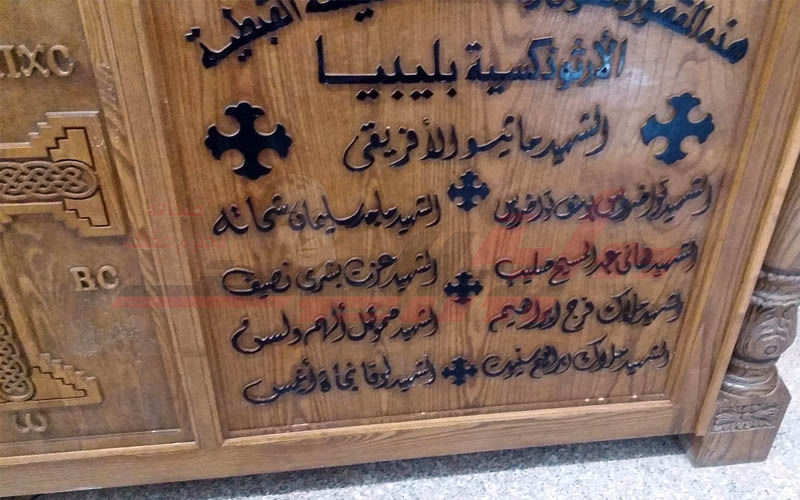 هذه المقصورة القبطية
الأرثوذكسية بليبيا
الشهيد ماثيو الأفريقى
الشهيد تواضروس يوسف تواضروس الشهيد ماجد سليمان شحاته
الشهيد هانى عبد المسيح صليب الشهيد عزت بشرى نصيف
الشهيد ملاك فرج ابراهيم الشهيد صموئيل ألهم ولسون
الشهيد ملاك ابراهيم سنيوت الشهيد لوقا نجاة أنيس
ΠΧΟC
BC
ω